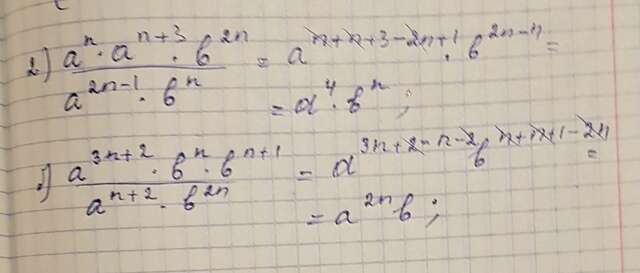 2) a^n · a^{n+3} · b^{2n} / a^{2n-1} · b^n = a^{n+n+3-2n+1} · b^{2n-n} =
= a^4 · b^n ;
a^{3n+2} · b^n · b^{n+1} / a^{n+2} · b^{2n} = a^{3n+2-n-2} b^{n+n+1-2n} =
= a^{2n} b ;